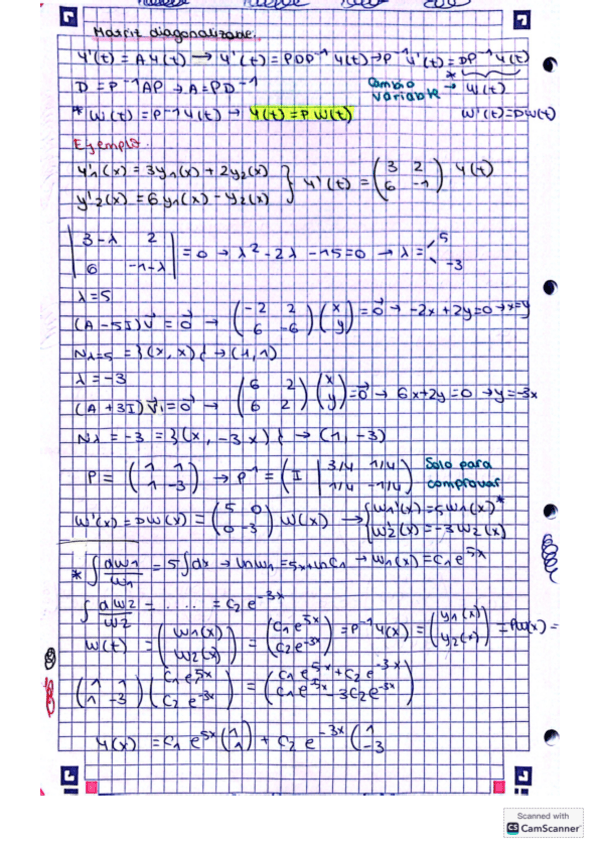 Matriz diagonalizable.
y'(t) = A y(t) → y'(t) = PDP⁻¹ y(t) → P⁻¹ y'(t) = DP⁻¹ y(t)
D = P⁻¹AP → A = PD⁻¹ Cambio variable → w(t)
* w(t) = P⁻¹ y(t) → y(t) = P w(t) w'(t) = D w(t)
Ejemplo.
y'1(x) = 3y1(x) + 2y2(x)
y'2(x) = 6y1(x) - y2(x) } y'(t) = (3 2 / 6 -1) y(t)
|3-λ 2 / 6 -1-λ| = 0 → λ² - 2λ - 15 = 0 → λ = 5 / -3
λ = 5
(A - 5I)v⃗ = 0⃗ → (-2 2 / 6 -6)(x / y) = 0⃗ → -2x + 2y = 0 → x = y
Nλ=5 = }(x, x){ → (1, 1)
λ = -3
(A + 3I)v⃗1 = 0⃗ → (6 2 / 6 2)(x / y) = 0⃗ → 6x + 2y = 0 → y = -3x
Nλ = -3 = }(x, -3x){ → (1, -3)
P = (1 1 / 1 -3) → P⁻¹ = (I | 3/4 1/4 / 1/4 -1/4) Solo para comprovar
w'(x) = D w(x) = (5 0 / 0 -3) w(x) → { w1'(x) = 5w1(x)* / w2'(x) = -3w2(x)
* ∫ dw1/w1 = 5∫dx → ln w1 = 5x + ln C1 → w1(x) = C1 e^5x
∫ dw2/w2 = ..... = C2 e^-3x
w(t) = (w1(x) / w2(x)) = (C1 e^5x / C2 e^-3x) = P⁻¹ y(x) = (y1(x) / y2(x)) = Pw(x) =
(1 1 / 1 -3)(C1 e^5x / C2 e^-3x) = (C1 e^5x + C2 e^-3x / C1 e^5x - 3C2 e^-3x)
y(x) = C1 e^5x (1 / 1) + C2 e^-3x (1 / -3
Scanned with
CS CamScanner